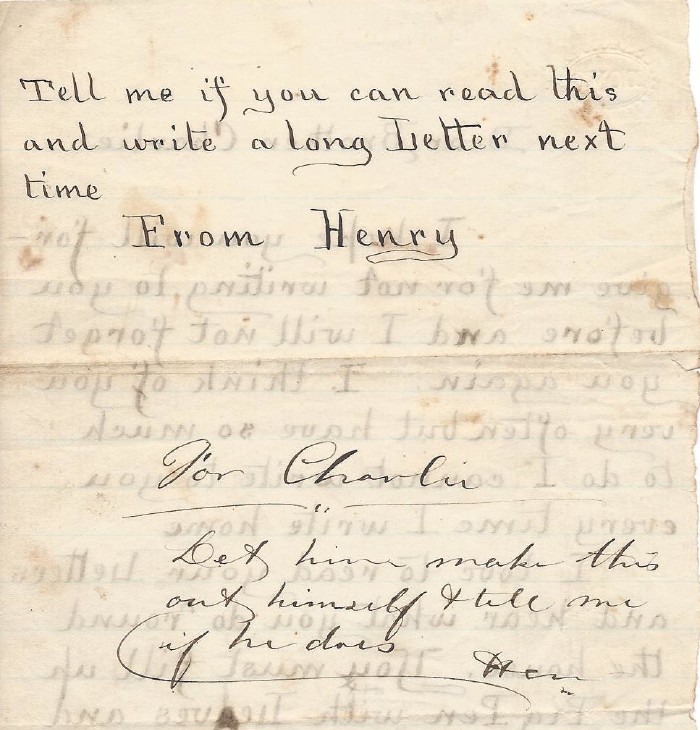 Tell me if you can read this
and write a long Letter next
time
From Henry
For Charlie
"
Let him make this
out himself & tell me
if he does
Hen